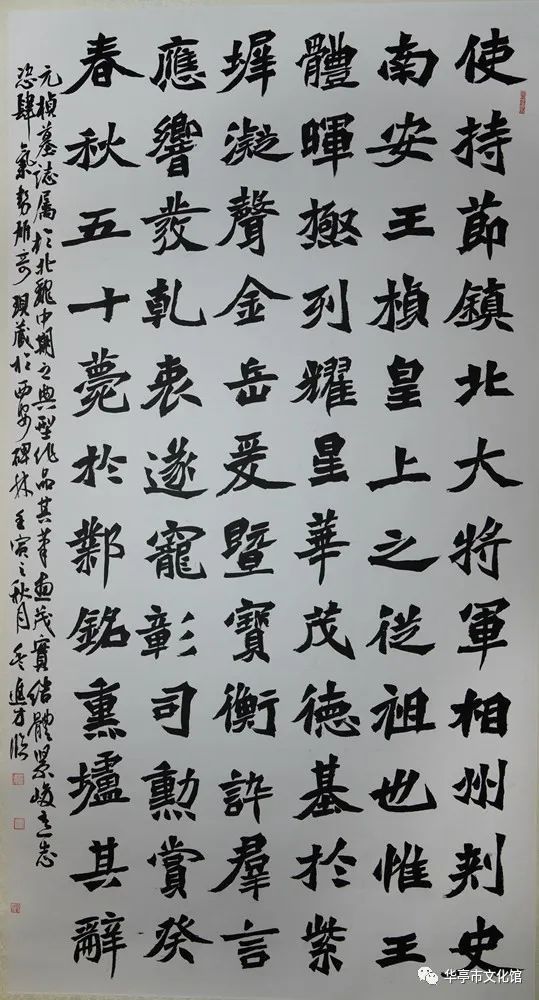 使持節鎮北大將軍相州刾史
南安王楨皇上之從祖也惟王
體暉極列耀星華茂德基於紫
墀凝聲金岳爰暨寶衡誶羣言
應響發乾衷遂寵彰司勳賞癸
春秋五十薨於鄴銘熏壚其辭
元楨墓誌属於北魏中期之典型作品其筆画茂實結體緊峻意志
恣肆氣勢雄奇現藏於西安碑林壬寅之秋月進才临
华亭市文化馆